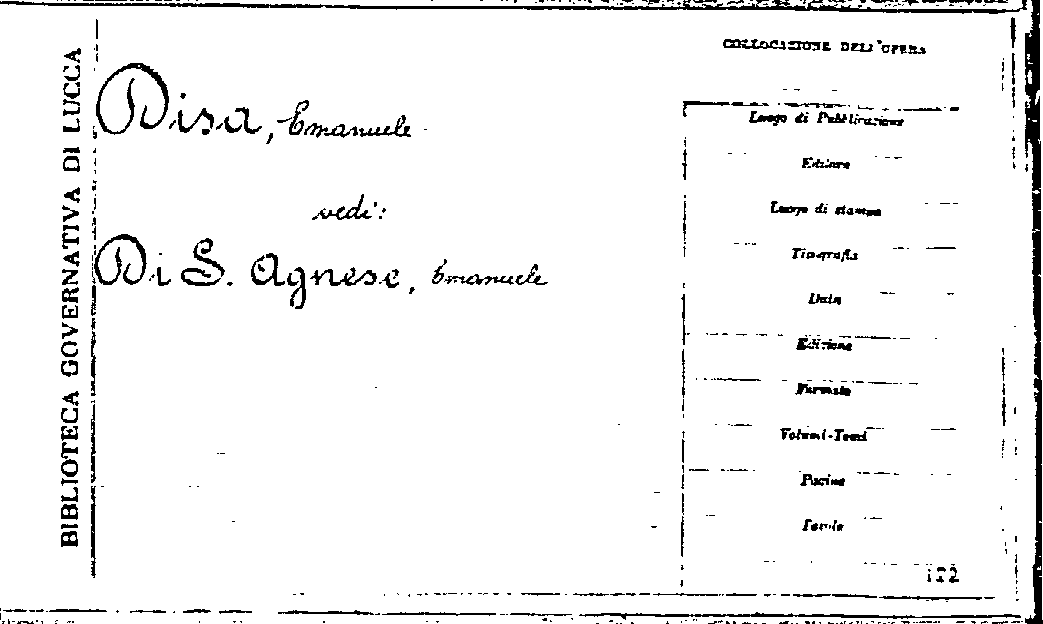 BIBLIOTECA GOVERNATIVA DI LUCCA
Disa, Emanuele
vedi:
Di S. Agnese, Emanuele
COLLOCAZIONE DELL'OPERA
Luogo di Pubblicazione
Editore
Luogo di stampa
Tipografia
Data
Edizione
Formato
Volumi-Tomi
Pagine
Tavole